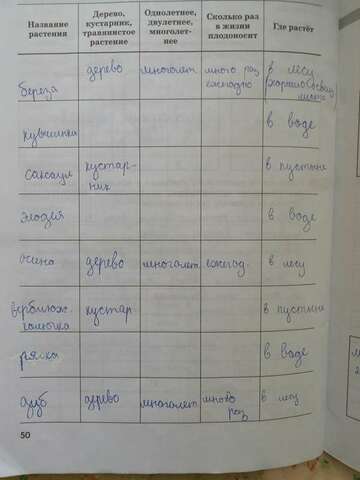 Название
растения
Дерево,
кустарник,
травянистое
растение
Однолетнее,
двулетнее,
многолет-
нее
Сколько раз
в жизни
плодоносит
Где растёт
берёза
дерево
многолет.
много раз
ежегодно
в лесу
(хорошо освещ
места
кувшинка
в воде
саксаул
кустар-
ник
в пустыне
элодея
в воде
осина
дерево
многолет.
ежегод.
в лесу
верблюж.
колючка
кустар
в пустыне
ряска
в воде
дуб
дерево
многолет
много
раз
в лесу
50